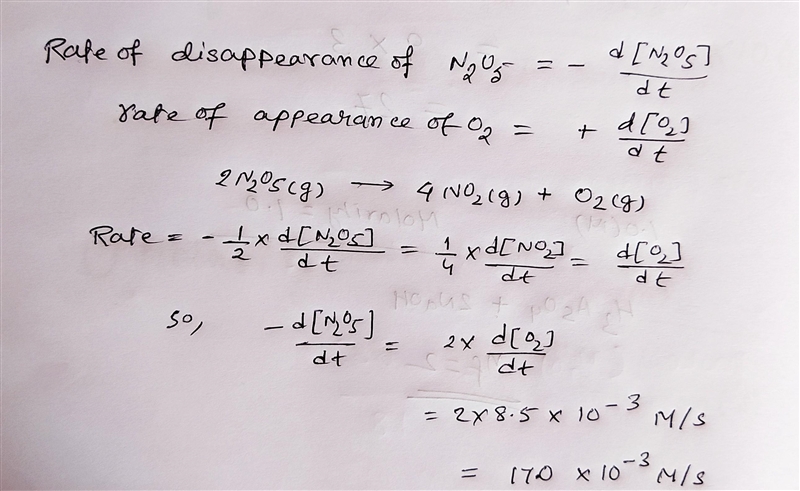 Rate of disappearance of N2O5 = - d[N2O5]/dt
rate of appearance of O2 = + d[O2]/dt
2N2O5(g) → 4NO2(g) + O2(g)
Rate = - 1/2 x d[N2O5]/dt = 1/4 x d[NO2]/dt = d[O2]/dt
so, - d[N2O5]/dt = 2x d[O2]/dt
= 2x8.5 x 10^-3 M/s
= 170 x 10^-3 M/s